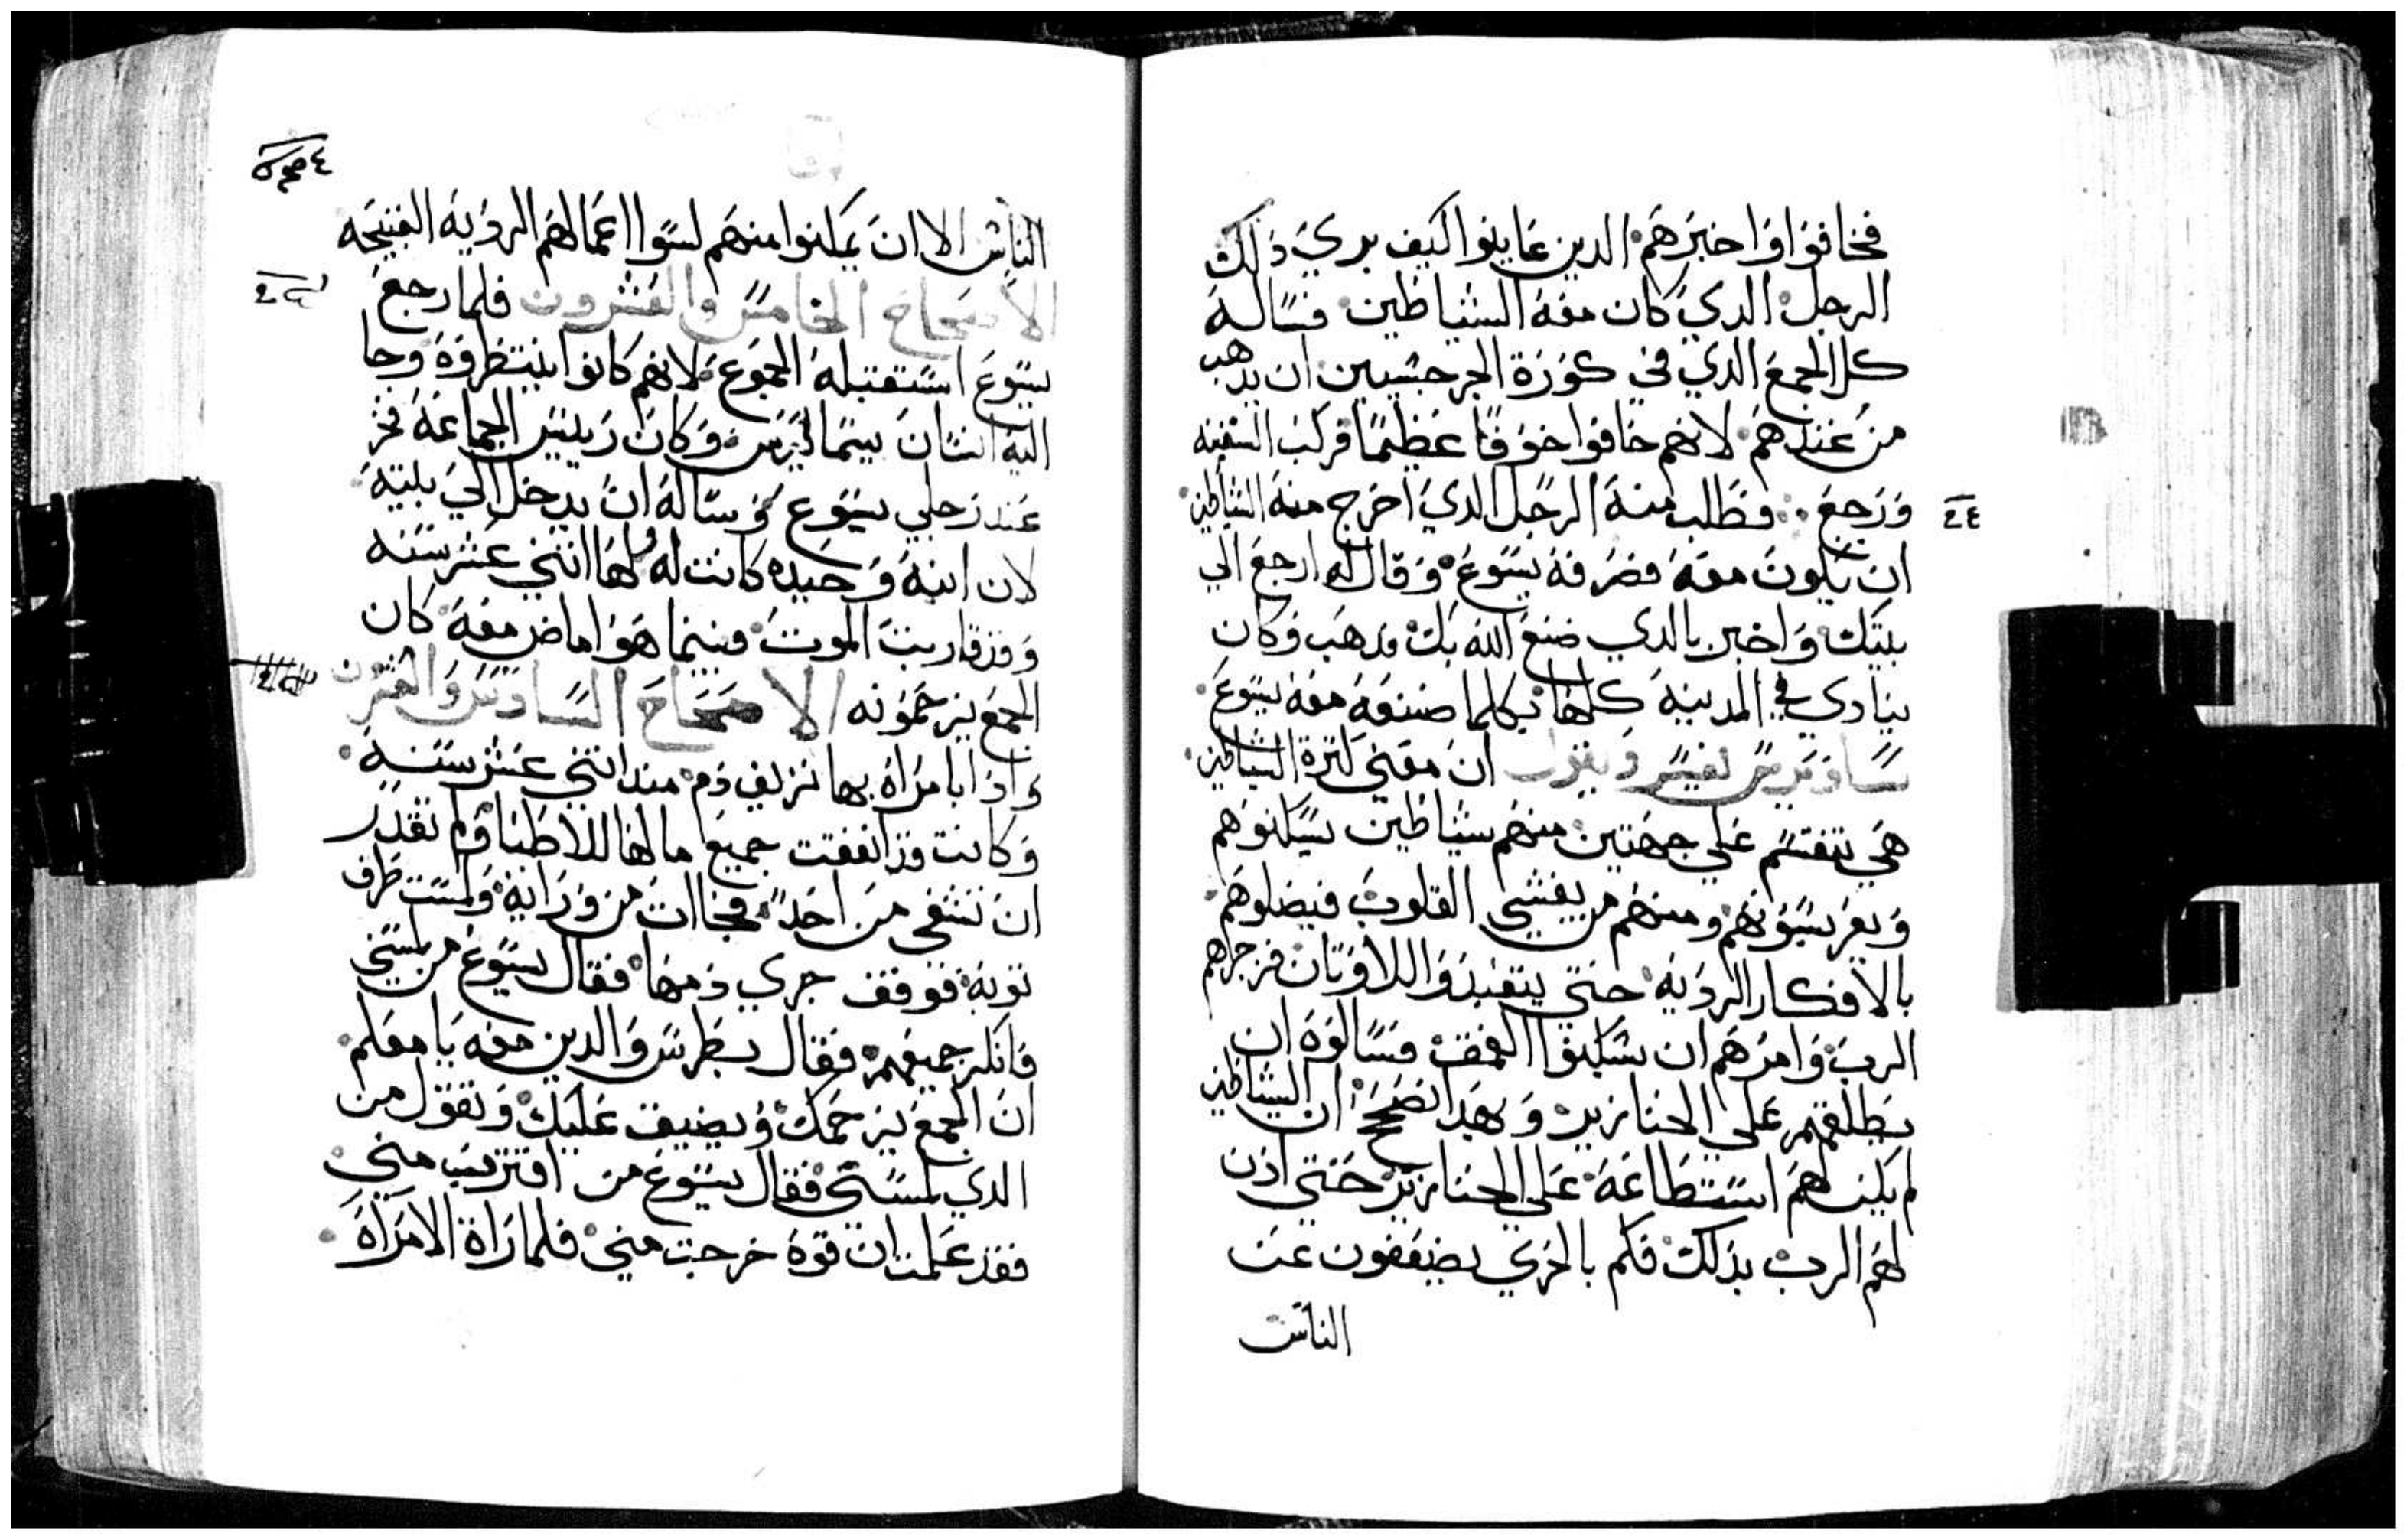 فخافوا واخبرهم الدين عاينوا كيف بري دلك
الرجل الدي كان معه الشياطين فساله
كل الجمع الدي في كورة الجرجسيين ان يدهب
من عندهم لانهم خافوا خوفا عظيما فركب السفينه
ورجع فطلب منه الرجل الدي اخرج منه الشياطين
٢٤
ان يكون معه فصرفه يسوع وقال له ارجع الي
بيتك واخبر بالدي صنع الله بك فدهب وكان
ينادي في المدينه كلها بكلما صنعه معه يسوع
ساويرس يفسر ويقول ان معني كثرة الشياطين
هي تنقسم علي جهتين منهم شياطين يسكنوهم
ويفريسونهم ومنهم من يغشي القلوب فيضلوهم
بالافكار الرديه حتي يتعبدوا للاوتان فزجرهم
الرب وامرهم ان يسكنوا العمق فسالوه ان
يطلقهم علي الخنازير وبهدا نصحح ان الشياطين
لم يكن لهم استطاعة علي الخنازير حتي ادن
لهم الرب بدلك فكم بالحري يضعفون عن
الناس
الناس الا ان يمكنوا منهم لسوا اعمالهم الرديه القبيحه
الاصحاح الخامس والعشرون فلما رجع
يسوع استقبله الجموع لانهم كانوا ينتظروه وجا
اليه انسان يسما ليرس وكان رييس الجماعة فخر
عند رجلي يسوع وساله ان يدخل الي بيته
لان ابنة وحيده كانت له ولها اتني عشر سنه
وقد قاربت الموت فبينما هو اماض معه كان
الجمع يزحمونه الاصحاح السادس والعشرون
واذا بامراة بها نزيف دم مند اتني عشر سنة
وكانت قد انفقت جميع مالها للاطبا ولم تقدر
ان تشفي من احد فجاات من ورائه ولمست طرف
توبه فوقف جري دمها فقال يسوع من لمسني
فانكر جميعهم فقال بطرس والدين معه يا معلم
ان الجمع يزحمك ويضيف عليك وتقول من
الدي لمسني فقال يسوع من اقترب مني
فقد علمت ان قوة خرجت مني فلما راة الامراة